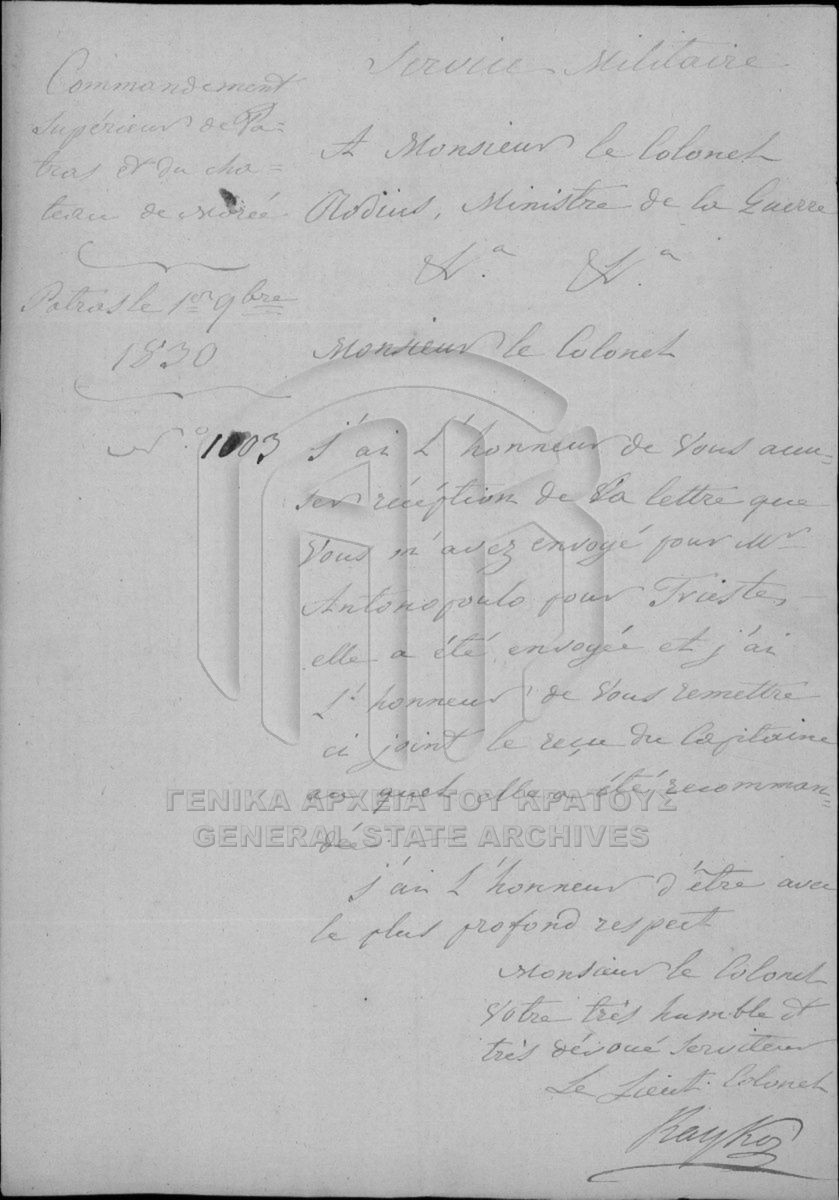 Service Militaire
Commandement
Supérieur de Pa=
tras et du cha=
teau de Morée
Patras le 1er 9bre
1830
N.o 1003
A Monsieur le Colonel
Rodius, Ministre de la Guerre
&.a &.a
Monsieur le Colonel
J'ai L'honneur de Vous accu=
ser réception de la lettre que
Vous m'avez envoyé pour Mr
Antonopoulo pour Trieste,
elle a été envoyée et j'ai
L'honneur de Vous remettre
ci joint le reçu du Capitaine
au quel elle a été recomman=
dée
J'ai L'honneur d'être avec
le plus profond respect
Monsieur le Colonel
Votre très humble et
très dévoué Serviteur
Le Lieut. Colonel
Rayko
ΓΕΝΙΚΑ ΑΡΧΕΙΑ ΤΟΥ ΚΡΑΤΟΥΣ
GENERAL STATE ARCHIVES